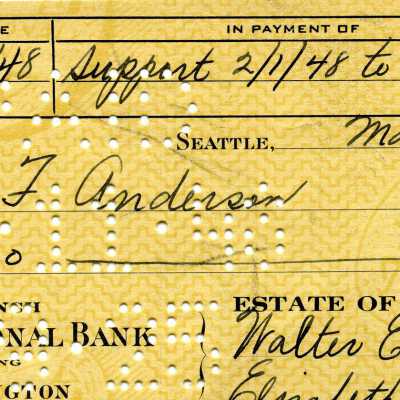 E IN PAYMENT OF
/48 Support 2/1/48 to
SEATTLE, Ma
F Anderson
o
NCH
ONAL BANK
NG
NGTON
ESTATE OF
Walter E
Elizabeth